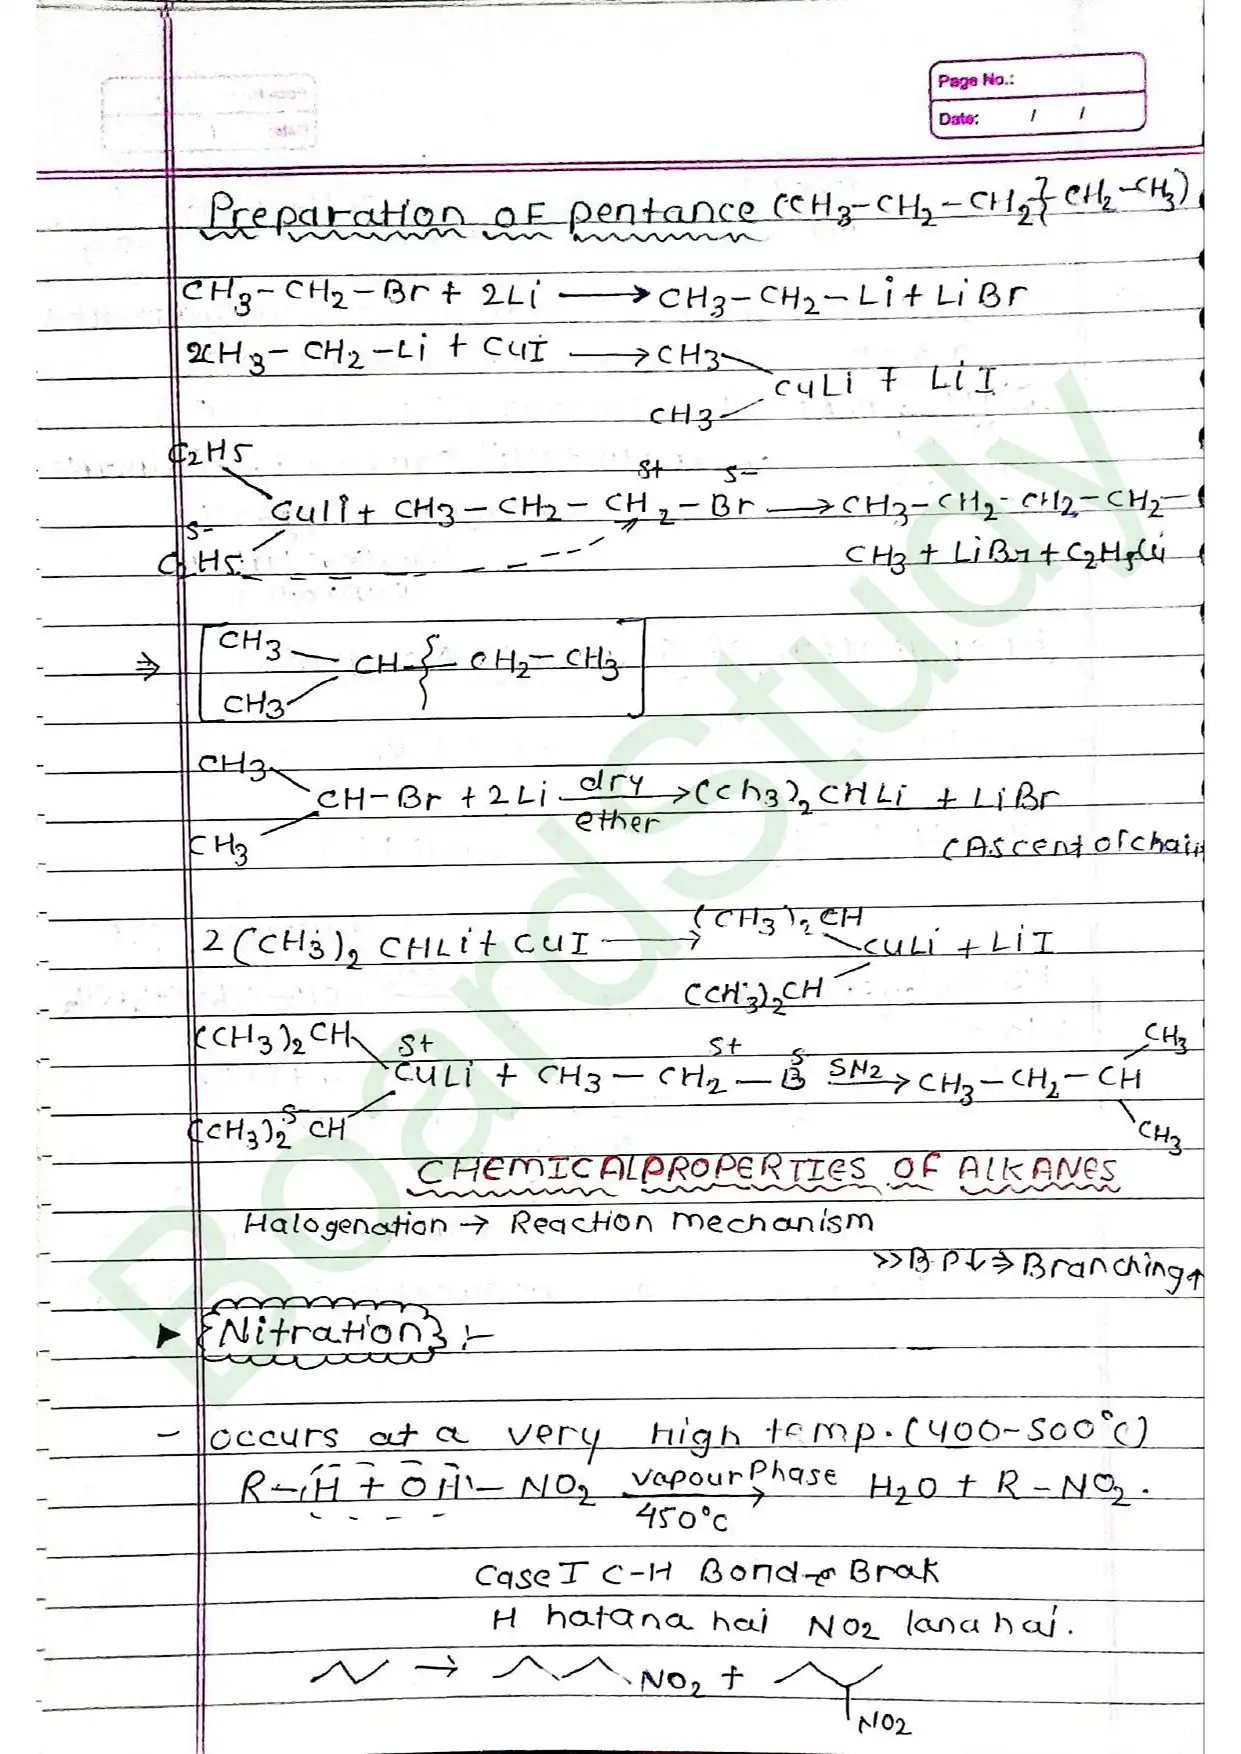 Page No.:
Date: / /
Preparation of pentance (CH3-CH2-CH2}CH2-CH3)
CH3-CH2-Br + 2Li ⟶ CH3-CH2-Li + LiBr
2CH3-CH2-Li + CuI ⟶ CH3
CuLi + LiI
CH3
C2H5
δ+ δ-
CuLi + CH3-CH2-CH2-Br ⟶ CH3-CH2-CH2-CH2-
δ-
C2H5
CH3 + LiBr + C2H5Cu
⇒ [CH3
CH-}-CH2-CH3]
CH3
CH3
CH-Br + 2Li dry ether ⟶ (CH3)2CHLi + LiBr
CH3
(Ascent of chain
(CH3)2CH
2(CH3)2CHLi + CuI ⟶ CuLi + LiI
(CH3)2CH
(CH3)2CH δ+ δ+ δ- CH3
CuLi + CH3-CH2-B SN2 ⟶ CH3-CH2-CH
(CH3)2CH δ- CH3
CHEMICALPROPERTIES OF ALKANES
Halogenation → Reaction mechanism
>> B.P↓ ⇒ Branching↑
▶ {Nitration} :-
- occurs at a very high temp. (400-500°C)
R-H + OH-NO2 vapour Phase 450°C ⟶ H2O + R-NO2.
Case I C-H Bond Brak
H hatana hai NO2 lana hai.
→ NO2 +
NO2
BoardStudy